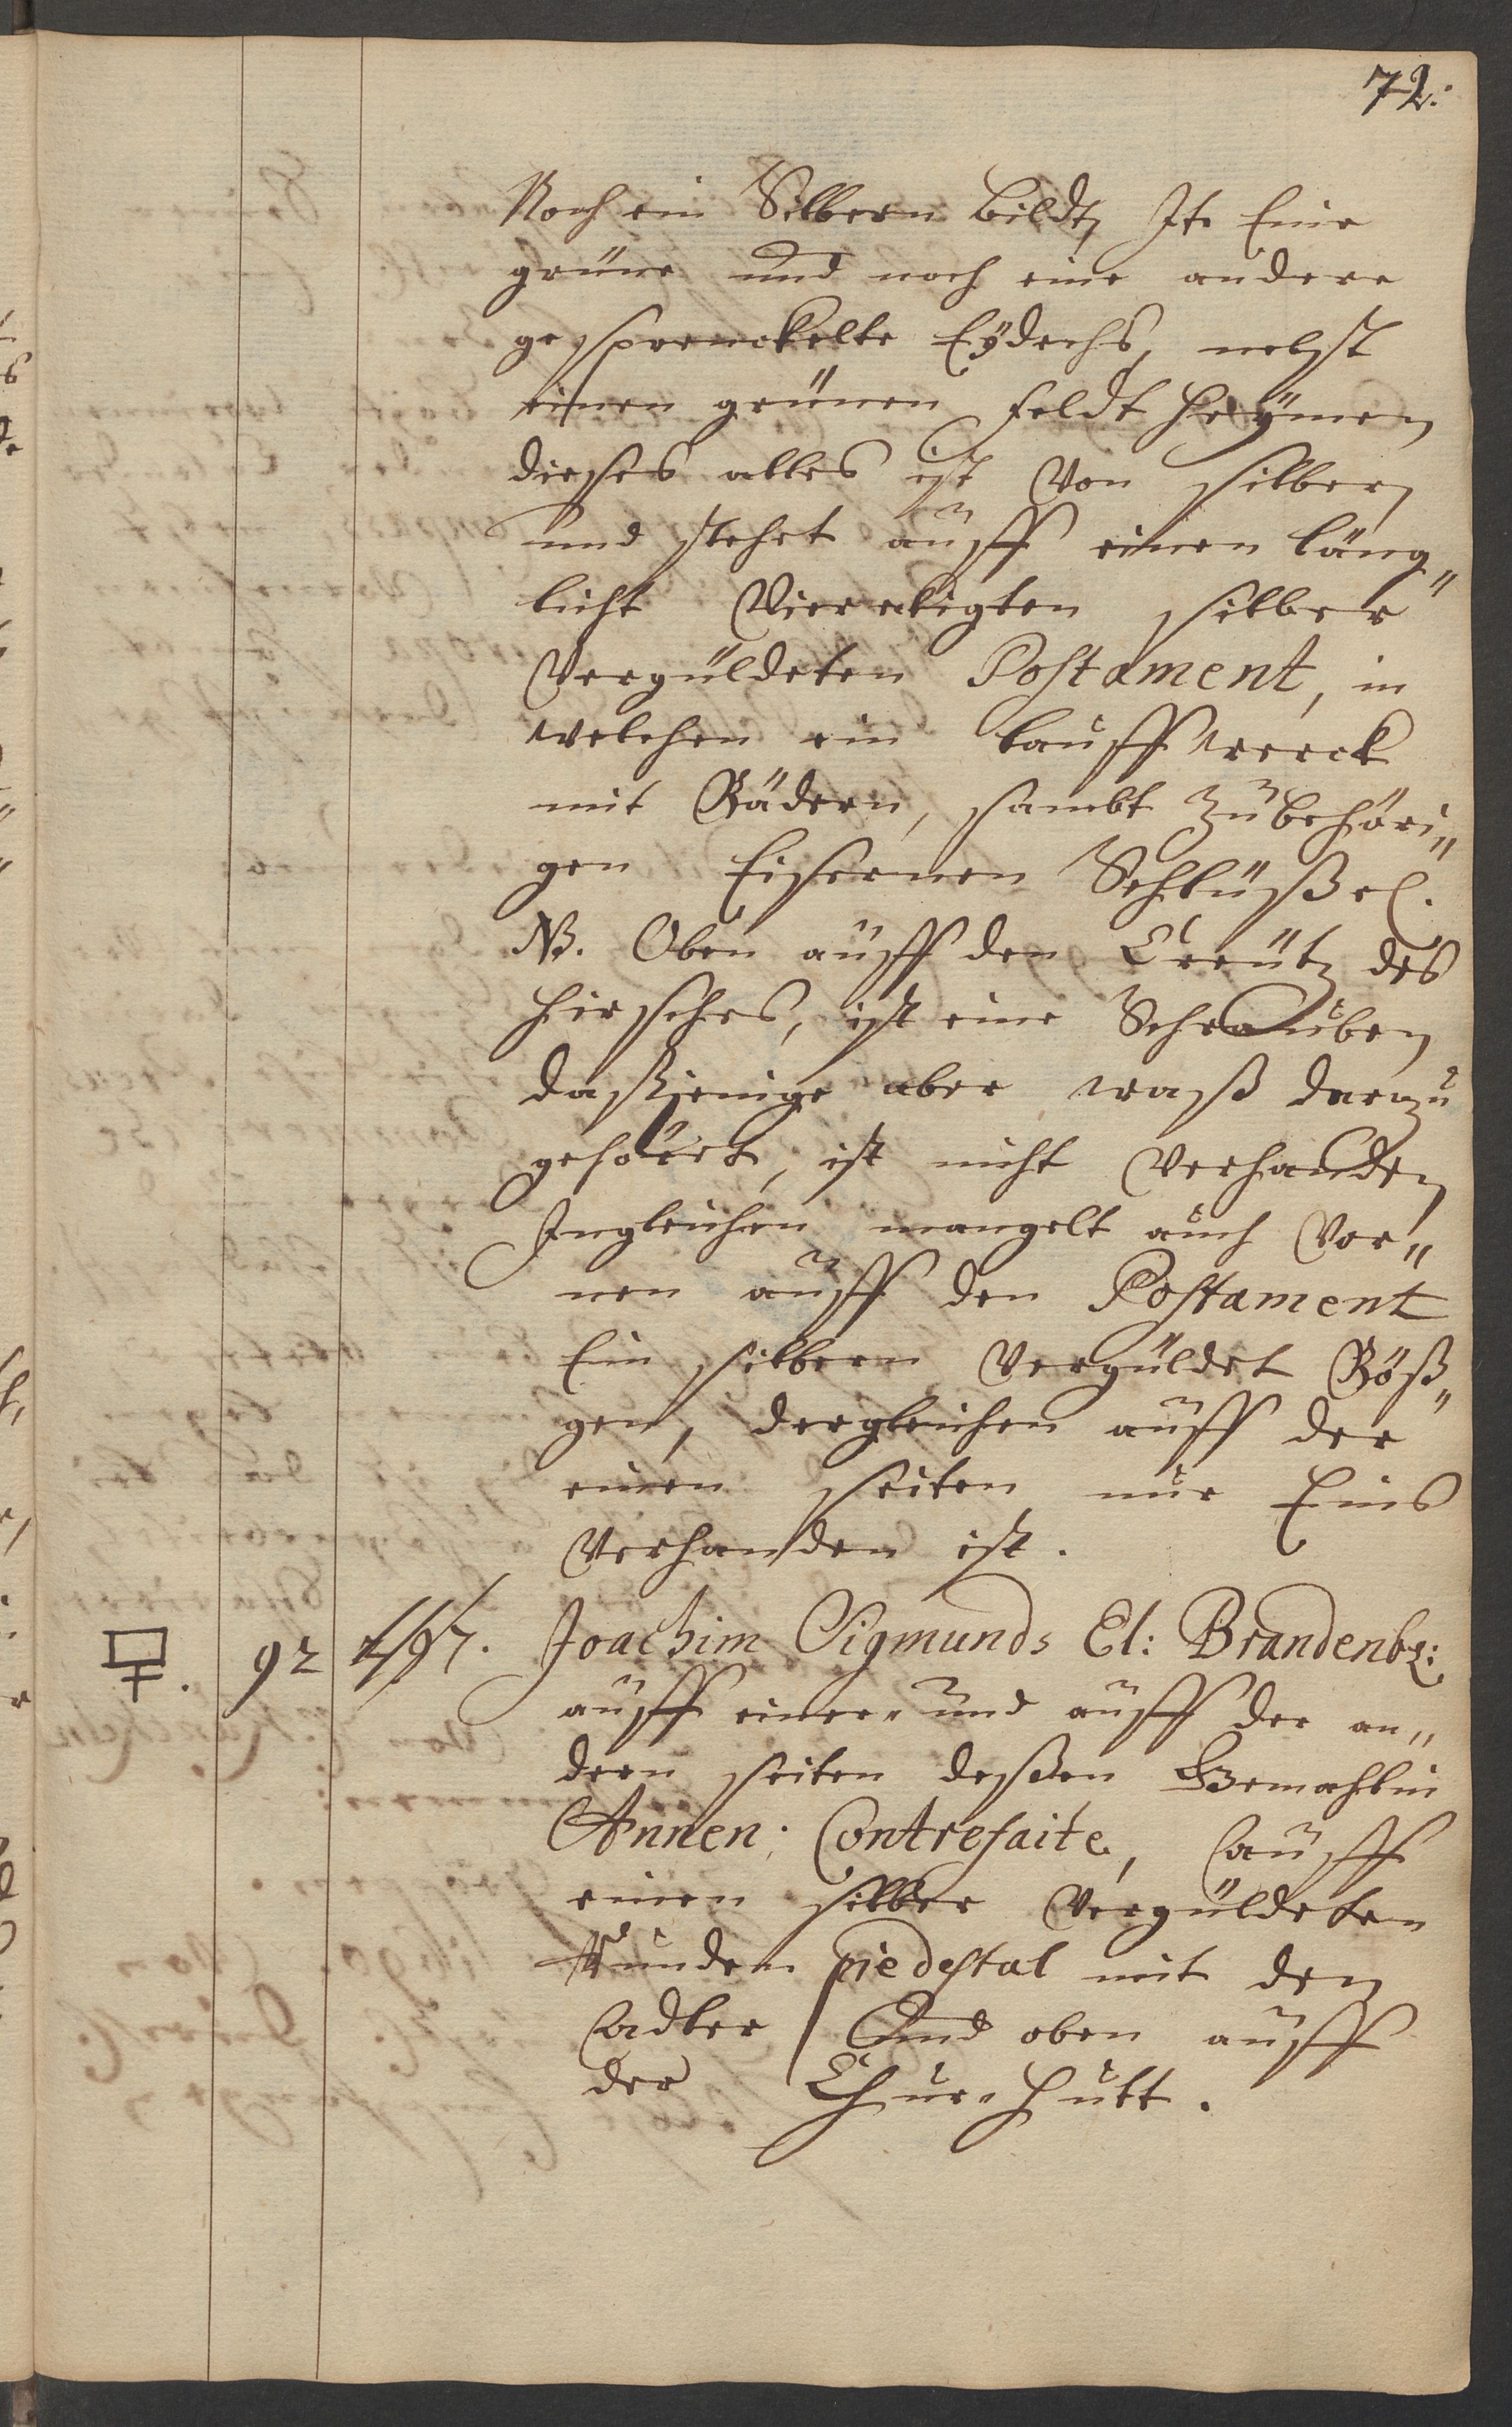 72.
Noch ein Silbern Bildt, It. Eine
grüne und noch eine andere
gesprenckelte Eÿdechs, nebst
einen grünen Feldt Heÿmen,
dieses alles ist Von silber,
und stehet auff einen läng„
licht Viereckigten silber
Vergüldeten Postament, in
welchen ein Lauffwerck
mit Rädern, sambt zubehöri„
gen Eisernen Schlüßel.
NB. Oben auff den Creütz des
Hirsches, ist eine Schrauben,
daßjenige aber waß darzu
gehöret, ist nicht Verhanden,
Ingleichen mangelt auch Vor„
nen auff den Postament
Ein silbern Vergüldet Röß„
gen, dergleichen auff der
einen seiten nur Eins
Verhanden ist.
92 Joachim Sigmunds El: Brandenb:
auff einer- und auff der an„
dern seiten deßen Gemahlin
Annen: Contrefaite, auff
einen silber Vergüldeten
Runden piedestal mit den
Adler Und oben auff
der Chur-Hutt.